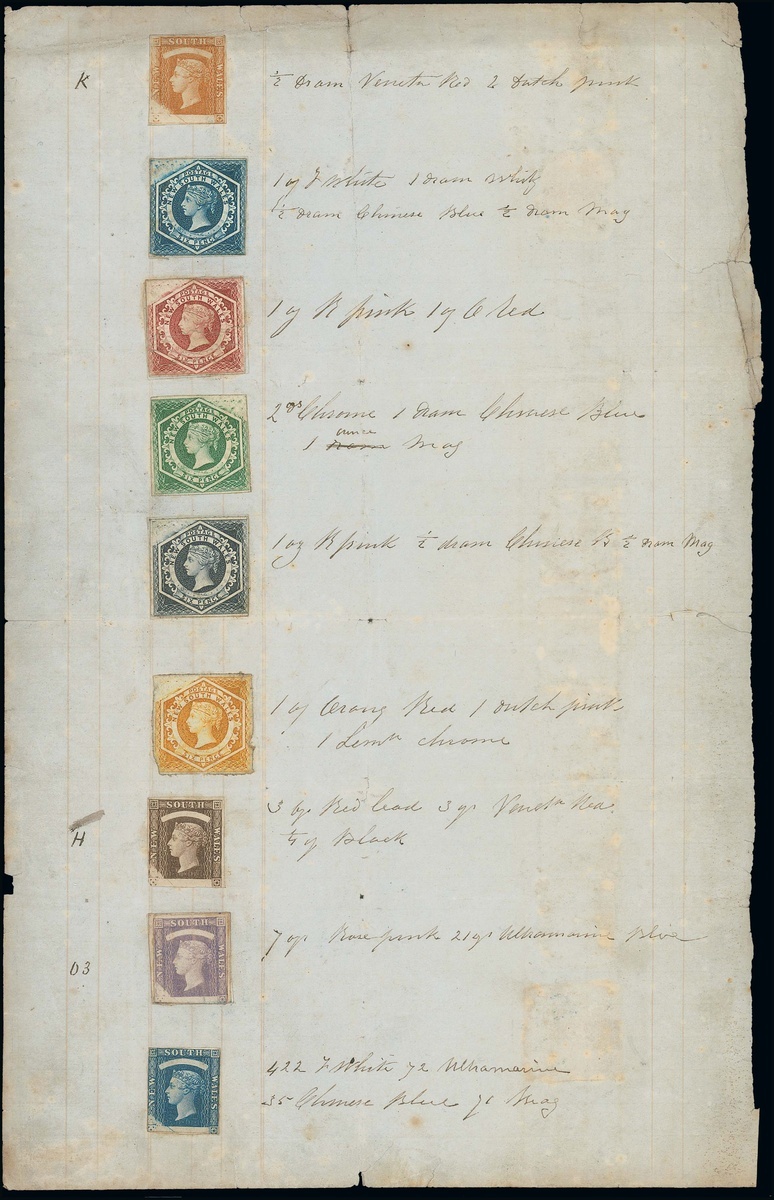 SOUTH
NEW WALES
K ½ Dram Veneta Red 2 Dutch pink
POSTAGE
NEW SOUTH WALES
SIX PENCE
1 oz F White 1 dram White
½ dram Chinese Blue ½ dram Mag
POSTAGE
NEW SOUTH WALES
SIX PENCE
1 oz R pink 1 oz O Red
POSTAGE
NEW SOUTH WALES
SIX PENCE
2 ozs Chrome 1 dram Chinese Blue
ounce
1 dram Mag
POSTAGE
NEW SOUTH WALES
SIX PENCE
1 oz R pink ½ dram Chinese B ½ dram Mag
POSTAGE
NEW SOUTH WALES
SIX PENCE
1 oz Orang Red 1 dutch pink
1 Lemn chrome
SOUTH
NEW WALES
3 ozs Red lead 3 ozs Veneta Red
H oz Black
SOUTH
NEW WALES
7 ozs Rose pink 21 ozs Ultramarine Blue
03
SOUTH
NEW WALES
422 F White 72 Ultramarine
35 Chinese Blue 71 Mag